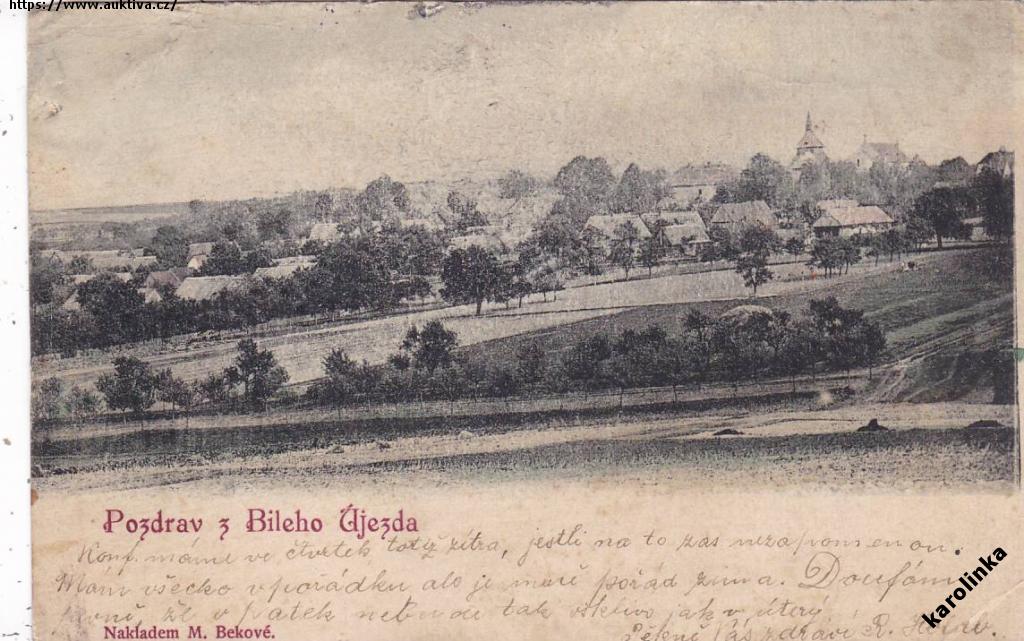 https://www.auktiva.cz/
Pozdrav z Bileho Újezda
Konf. máme ve čtvrtek totiž zítra, jestli na to zas nezapomenou.
Mám všecko v pořádku ale je pořád zima. Doufám
pevně, že v pátek nebude tak ošklivo jak v úterý
Pěkně Vás zdraví R.
Nakladem M. Bekové.
karolinka